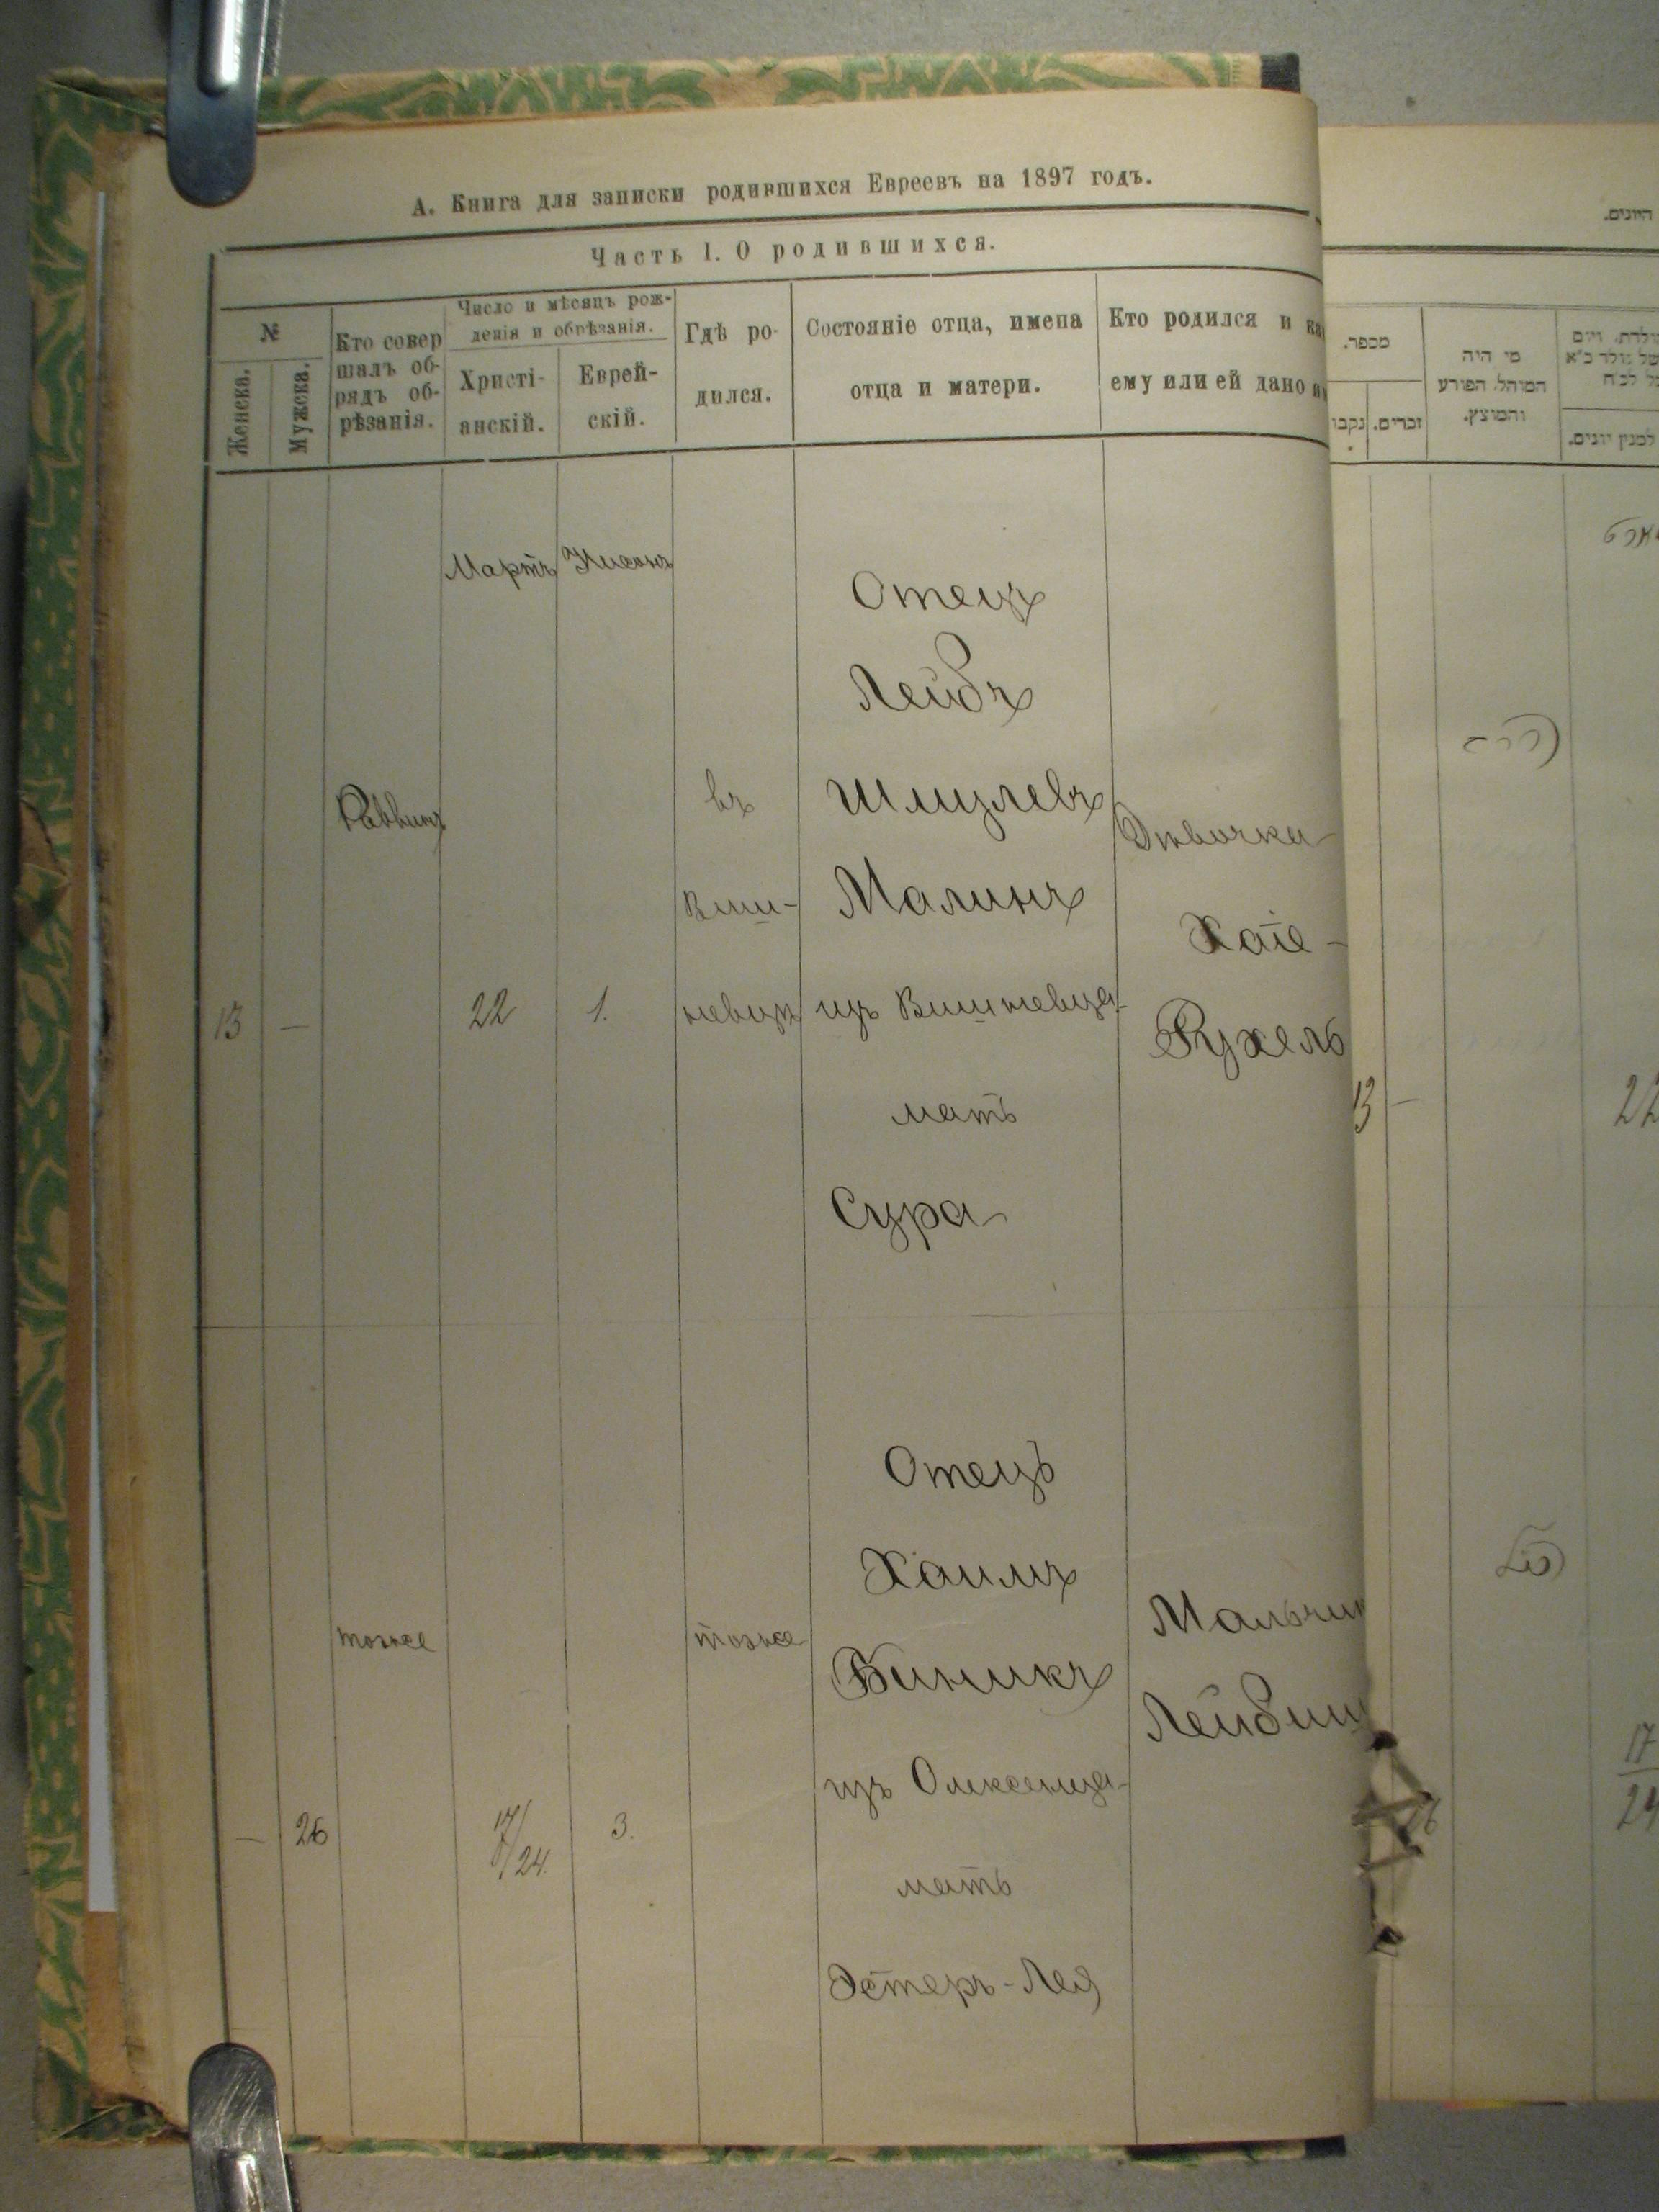 А. Книга для записки родившихся Евреевъ на 1897 годъ.
Часть 1. О родившихся.
№
Женска.
Мужска.
Кто совер
шалъ об-
рядъ об-
рѣзанія.
Число и мѣсяцъ рож-
денія и обрѣзанія.
Христі-
анскій.
Еврей-
скій.
Гдѣ ро-
дился.
Состояніе отца, имена
отца и матери.
Кто родился и ка
ему или ей дано
Мартъ
Нисонъ
13
—
Раввинъ
22
1.
въ
Виш-
невцѣ
Отецъ
Лейбъ
Шмулевъ
Малинъ
изъ Вишневца
мать
Сура
Дѣвочка
Хаіе-
Рухель
—
26
тоже
17/24.
3.
тоже
Отецъ
Хаимъ
Биникъ
изъ Олексенца
мать
Эстеръ-Лея
Мальчи
Лейбиш
היונים.
מספר.
נקבו
זכרים.
מי היה
המוהל, הפורע
והמוצץ.
למנין יונים.
13
—
22
26
17
24